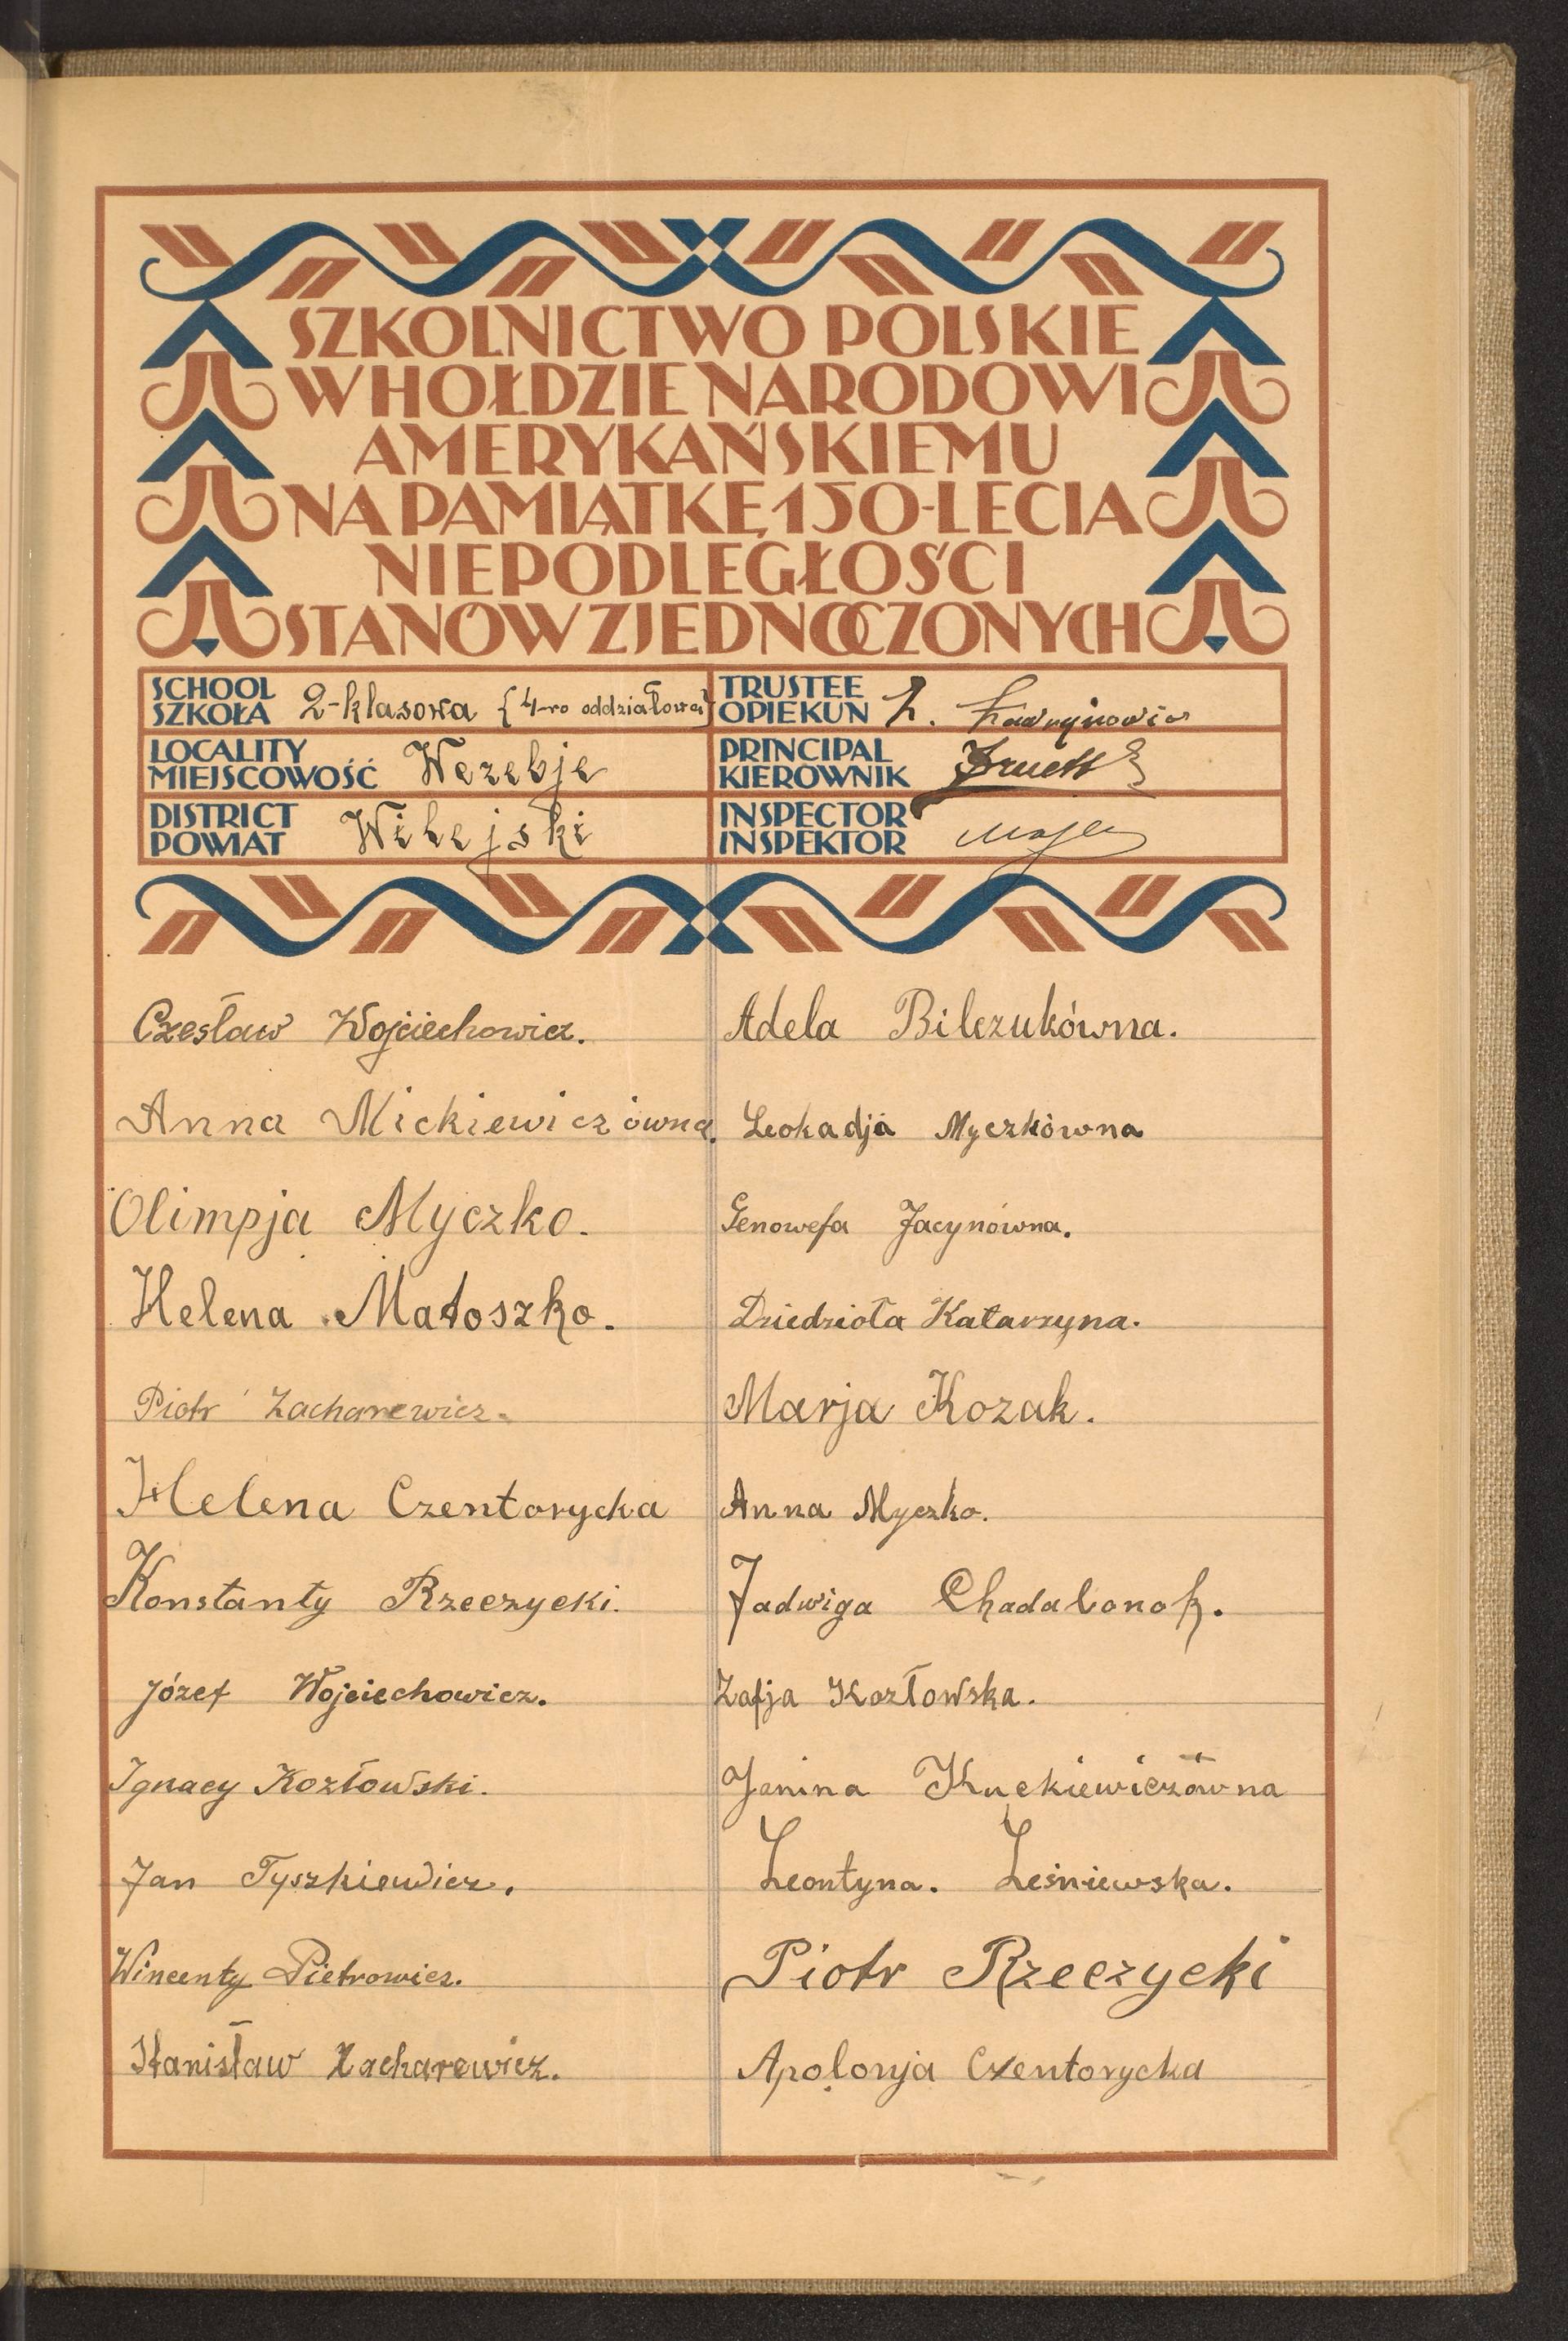 SZKOLNICTWO POLSKIE
W HOŁDZIE NARODOWI
AMERYKAŃSKIEMU
NA PAMIĄTKĘ 150-LECIA
NIEPODLEGŁOŚCI
STANÓW ZJEDNOCZONYCH
SCHOOL
SZKOŁA 2-klasowa (4-ro oddziałowa)
TRUSTEE
OPIEKUN
LOCALITY
MIEJSCOWOŚĆ Werebje
PRINCIPAL
KIEROWNIK
DISTRICT
POWIAT Wilejski
INSPECTOR
INSPEKTOR
Czesław Wojciechowicz.
Anna Mickiewiczówna.
Olimpja Myczko.
Helena Matoszko.
Piotr Zacharewicz.
Helena Czentorycka
Konstanty Rzeczycki.
Józef Wojciechowicz.
Ignacy Kozłowski.
Jan Tyszkiewicz.
Wincenty Pietrowicz.
Stanisław Zacharewicz.
Adela Bilczukówna.
Leokadja Myczkówna
Genowefa Jacynówna.
Dziedzioła Katarzyna.
Marja Kozak.
Anna Myczko.
Jadwiga Chadalonok.
Zofja Kozłowska.
Janina Kuckiewiczówna
Leontyna. Leśniewska.
Piotr Rzeczycki
Apolonja Czentorycka